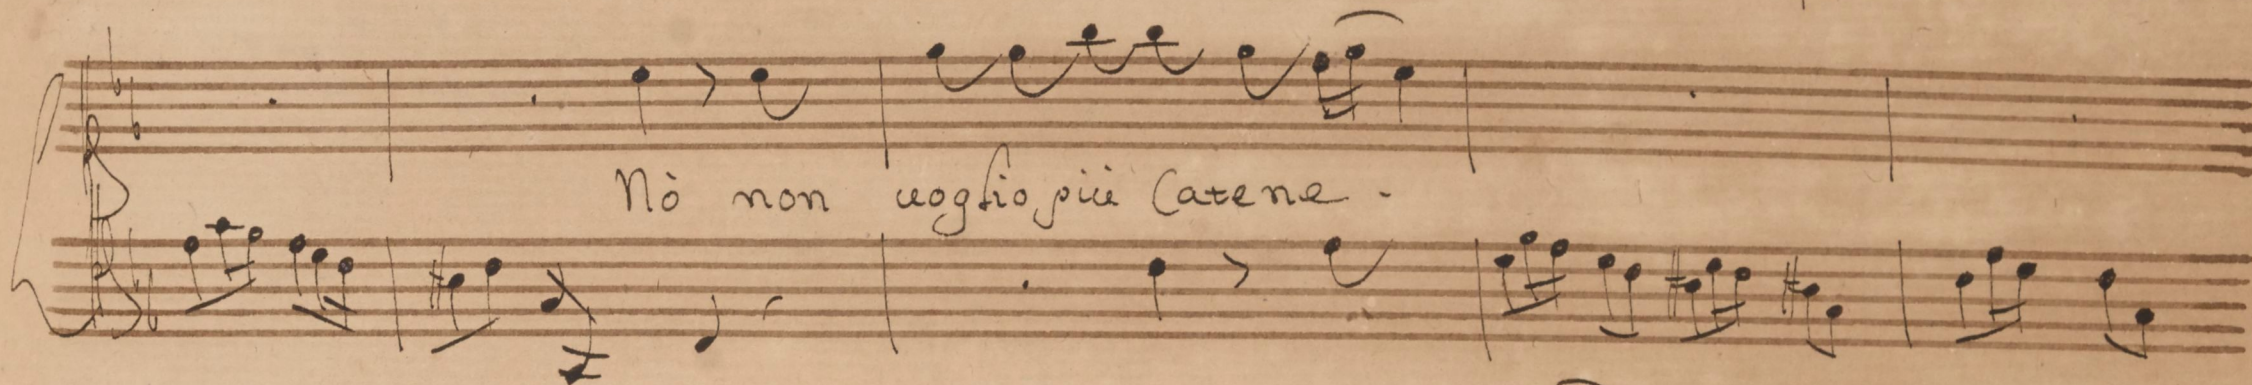 Nò non uoglio più Catene.